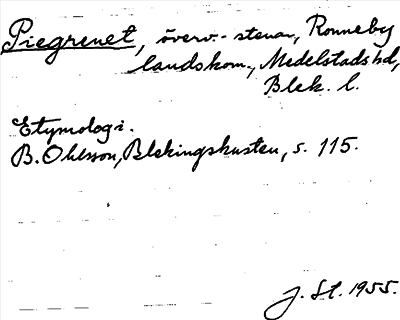 Piegrenet, överv.-stenar, Ronneby
landskom., Medelstads hd,
Blek. l.
Etymologi.
B. Ohlsson, Blekingskusten, s. 115.
J. St. 1955.